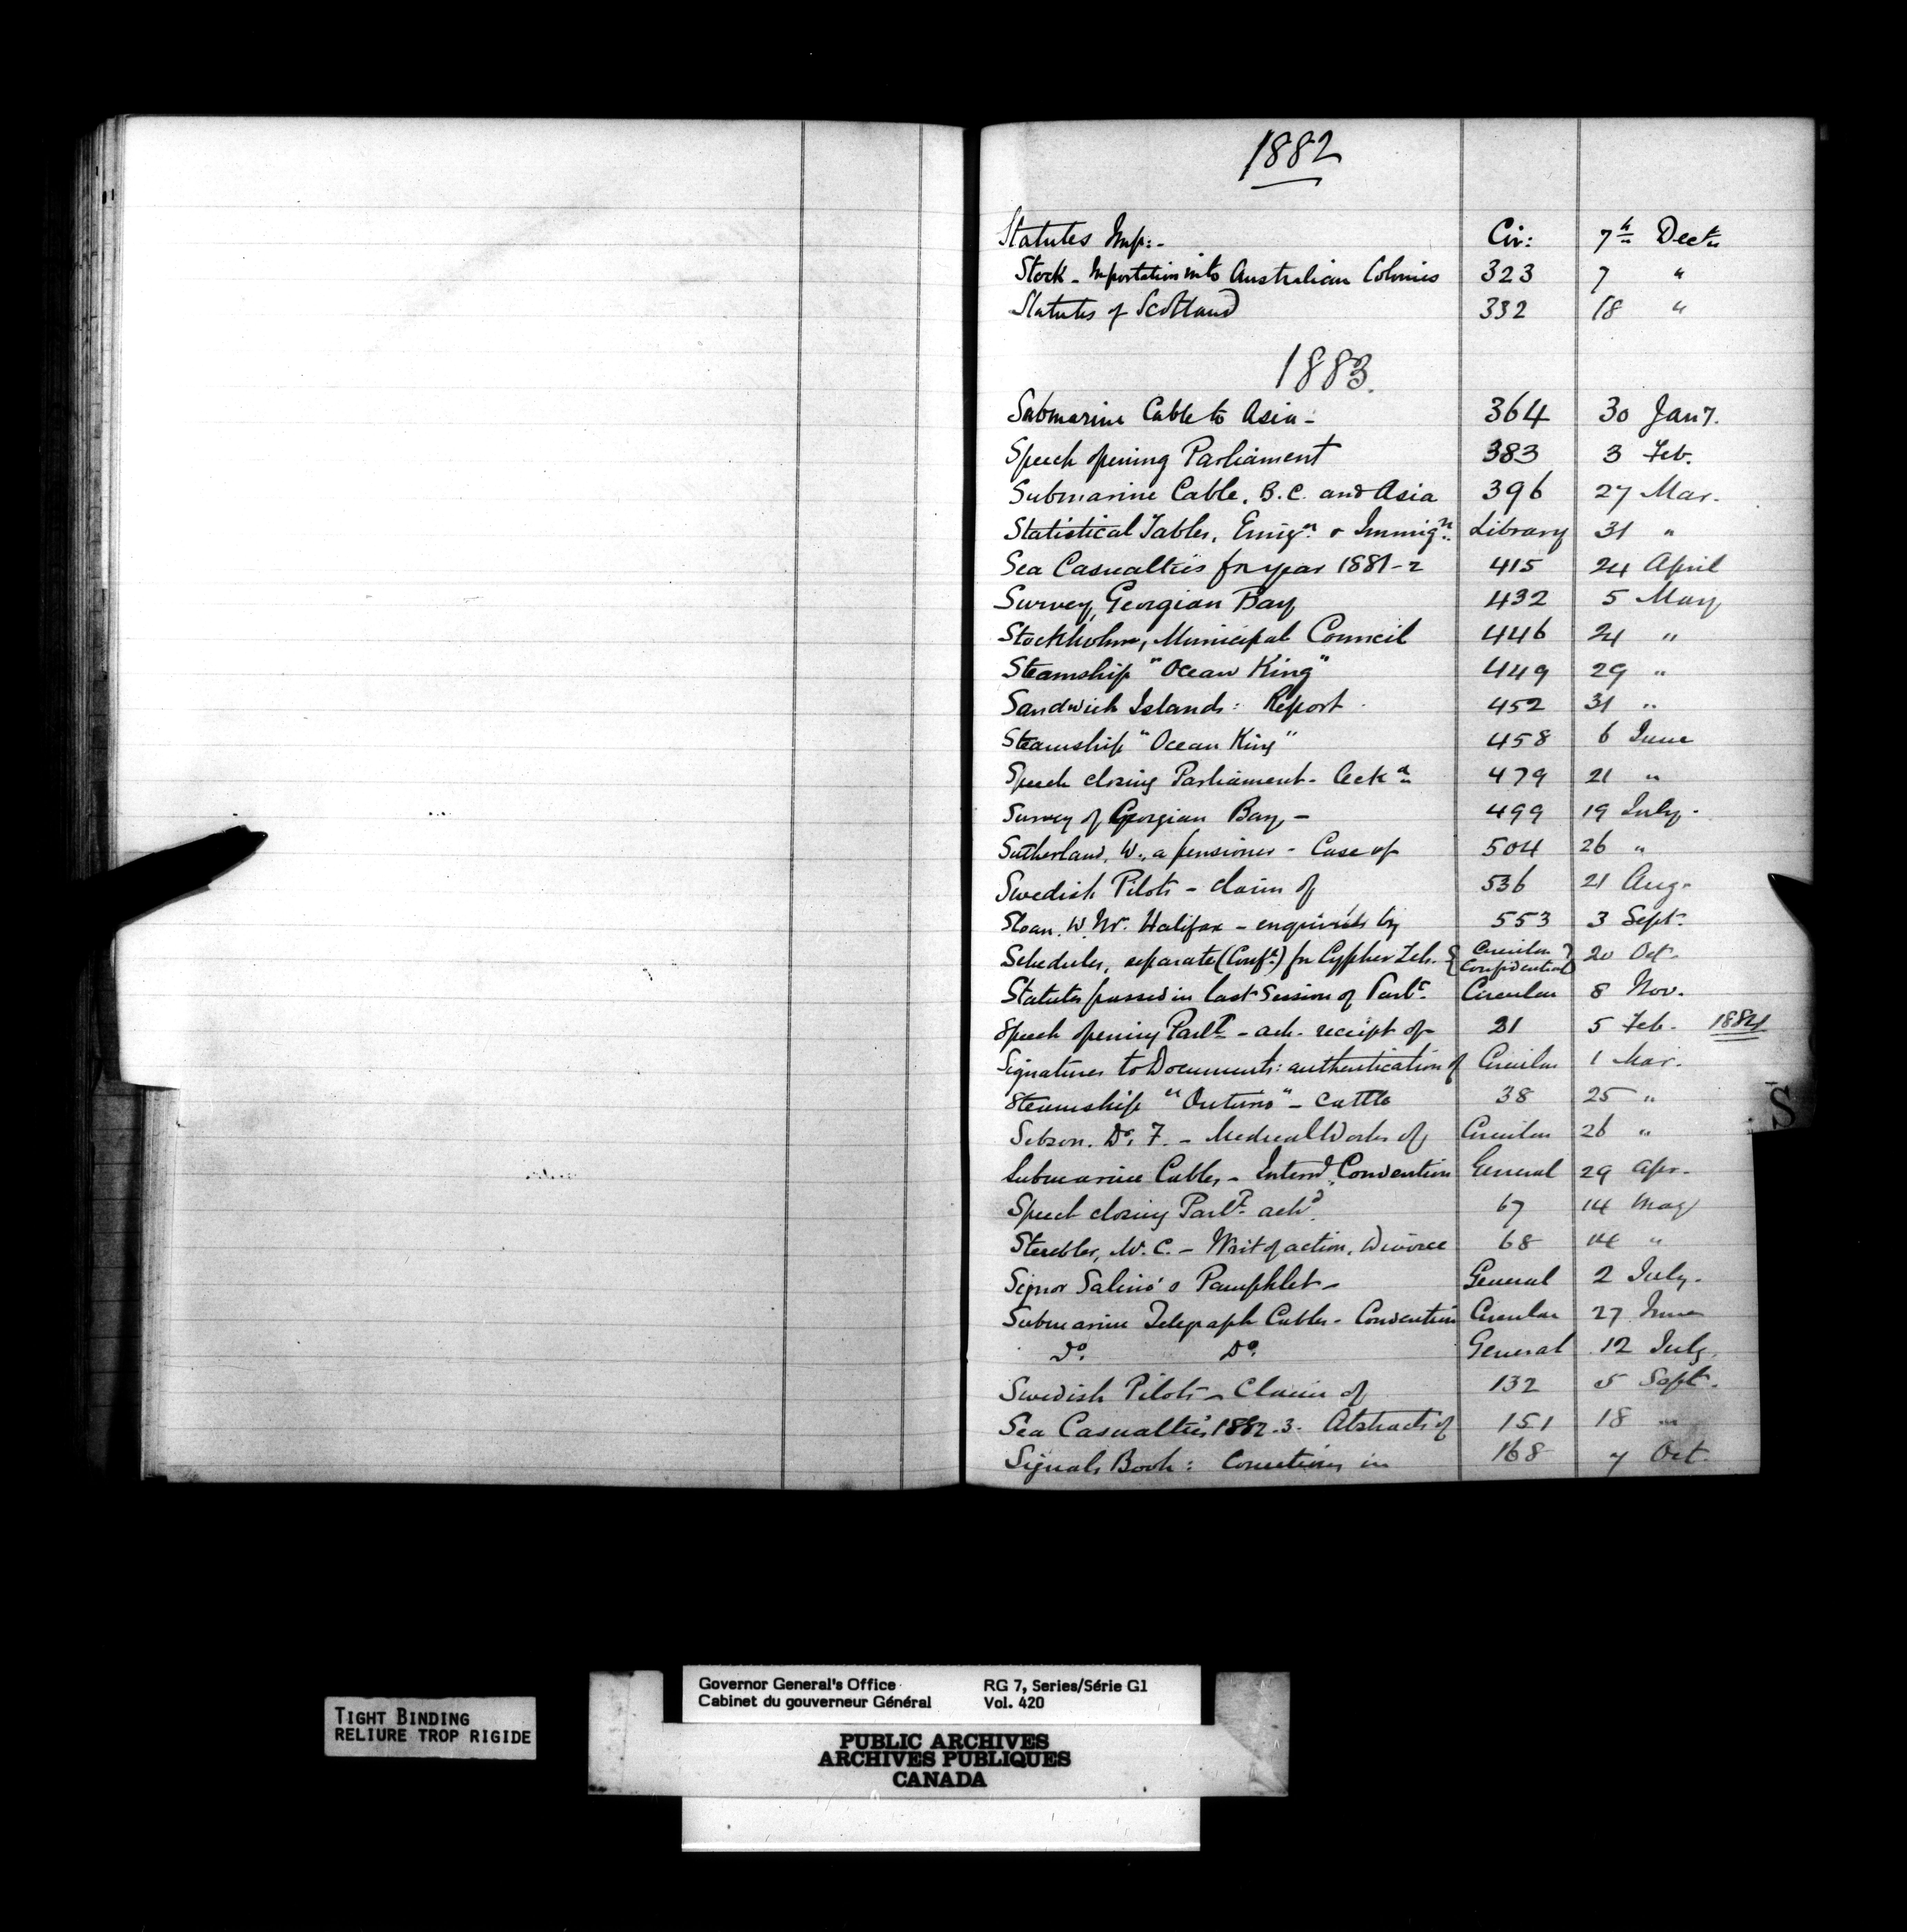 1882
Statutes Imp:- Cir: 7th Decr
Stock - Importation into Australian Colonies 323 7 "
Statutes of Scotland 332 18 "
1883.
Submarine Cable to Asia - 364 30 Jany.
Speech opening Parliament 383 3 Feb.
Submarine Cable, B.C. and Asia 396 27 Mar.
Statistical Tables, Emign & Immign Library 31 "
Sea Casualties for year 1881-2 415 24 April
Survey, Georgian Bay 432 5 May
Stockholm, Municipal Council 446 24 "
Steamship "Ocean King" 449 29 "
Sandwich Islands: Report 452 31 "
Steamship "Ocean King" 458 6 June
Speech closing Parliament - Ackd 479 21 "
Survey of Georgian Bay - 499 19 July.
Sutherland, W., a pensioner - Case of 504 26 "
Swedish Pilots - claim of 536 21 Aug.
Sloan, W. Halifax - enquiries by 553 3 Sept.
Schedules, separate (Conft) for Cypher Tel. { Circular Confidential } 20 Oct.
Statutes passed in last Session of Parlt Circular 8 Nov.
Speech opening Parlt - ack. receipt of 21 5 Feb. 1884
Signatures to Documents: authentication of Circular 1 Mar.
Steamship - Cattle 38 25 "
Dr. F. - Medical Works of Circular 26 "
Submarine Cables - Internl Convention General 29 Apr.
Speech closing Parlt ackd 67 14 May
W. C. - Writ of action, Divorce 68 14 "
Signor Salino's Pamphlet - General 2 July.
Submarine Telegraph Cables - Convention Circular 27 June
Do. Do. General 12 July.
Swedish Pilots - Claim of 132 5 Sept.
Sea Casualties 1882-3. Abstracts of 151 18 "
Signals Book: Corrections in 168 7 Oct.
S
TIGHT BINDING
RELIURE TROP RIGIDE
Governor General's Office RG 7, Series/Série G1
Cabinet du gouverneur Général Vol. 420
PUBLIC ARCHIVES
ARCHIVES PUBLIQUES
CANADA